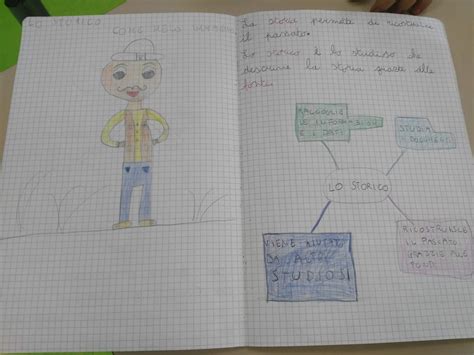 LO STORICO
COME
La storia permette di ricostruire
il passato.
Lo storico è lo studioso che
descrive la storia grazie alle
fonti.
RACCOGLIE
LE INFORMAZIONI
E I DATI
STUDIA
I DOCUMENTI
LO STORICO
VIENE AIUTATO
DA ALTRI
STUDIOSI
RICOSTRUISCE
IL PASSATO
GRAZZIE ALLE
FONTI